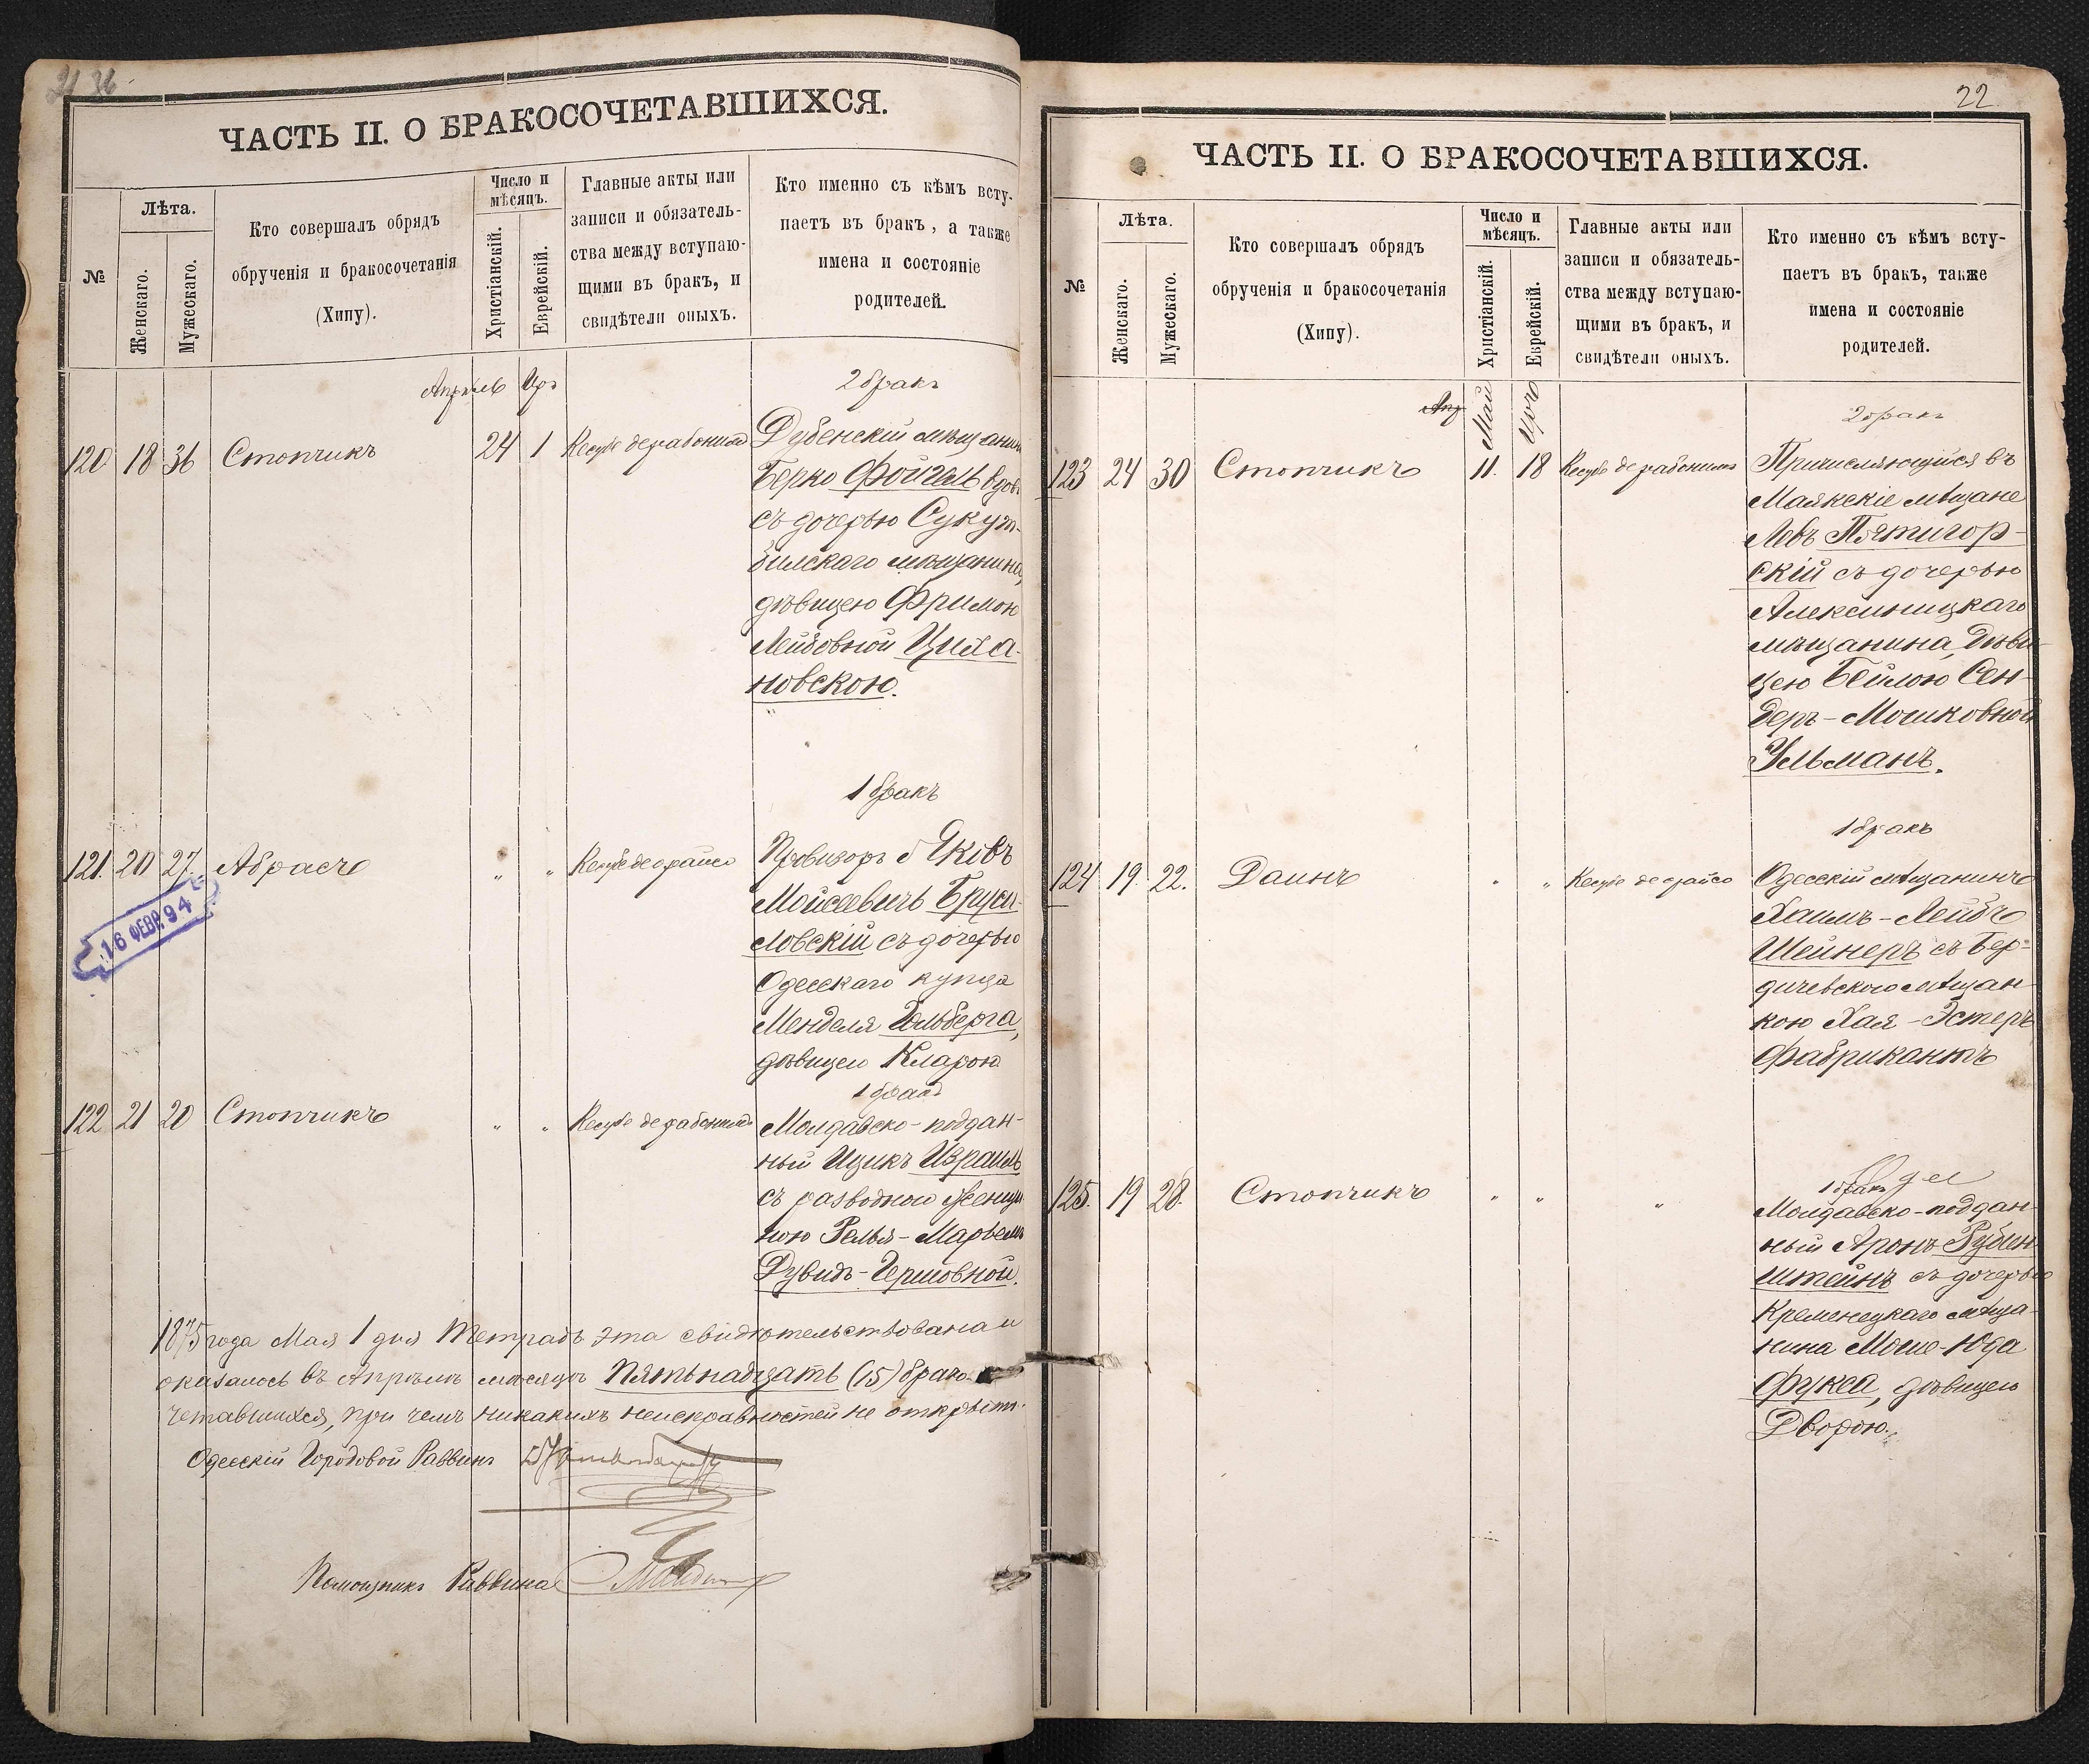 ЧАСТЬ II. О БРАКОСОЧЕТАВШИХСЯ.
№
Лѣта.
Женскаго.
Мужескаго.
Кто совершалъ обрядъ
обрученія и бракосочетанія
(Хипу).
Число и
мѣсяцъ.
Христіанскій.
Еврейскій.
Главные акты или
записи и обязатель-
ства между вступаю-
щими въ бракъ, и
свидѣтели оныхъ.
Кто именно съ кѣмъ всту-
паетъ въ бракъ, а также
имена и состояніе
родителей.
Апрѣль Ир
2 бракъ
120 18 36 Стопчикъ 24 1 Кесубе дерабонимъ Дубенскій мѣщанинъ
Берко Фойгель вдов
съ дочерью
мѣщанина,
дѣвицею Фримою
Лейбовной Циха-
новскою.
1 бракъ
121. 20 27. Абрасъ " " Кесубе деорайсо Провизоръ Яковъ
Мойсеевичъ Бруси-
ловскій съ дочерью
Одесскаго купца
Менделя Гольберга,
дѣвицею Кларою
16 ФЕВР. 94
1 бракъ
122 21 20 Стопчикъ " " Кесубе дерабонимъ Молдавско-поддан-
ный Ицикъ Израиль
съ разводной женщи-
ною Релья-Марьемъ
Дувидъ-Гершовной.
1875 года Мая 1 дня Тетрадь эта свидѣтельствована и
оказалось въ Апрѣлѣ мѣсяцѣ Пятьнадцать (15) брако-
четавшихся, при чемъ никакихъ неисправностей не открыто.
Одесскій Городовой Раввинъ
Помощникъ Раввина
22
ЧАСТЬ II. О БРАКОСОЧЕТАВШИХСЯ.
№
Лѣта.
Женскаго.
Мужескаго.
Кто совершалъ обрядъ
обрученія и бракосочетанія
(Хипу).
Число и
мѣсяцъ.
Христіанскій.
Еврейскій.
Главные акты или
записи и обязатель-
ства между вступаю-
щими въ бракъ, и
свидѣтели оныхъ.
Кто именно съ кѣмъ всту-
паетъ въ бракъ, также
имена и состояніе
родителей.
Апр Май
2 бракъ
123 24 30 Стопчикъ 11. 18 Кесубе дерабонимъ Причисляющійся въ
Маякскіе мѣщане
Левъ Пятигор-
скій съ дочерью
Алексиницкаго
мѣщанина, Дѣви-
цею Бейлою Сен-
деръ-Мошковной
Ульманъ.
1 бракъ
124 19. 22. Даинъ " " Кесубе деорайсо Одесскій мѣщанинъ
Хаимъ-Лейбъ
Шейнеръ съ Бер-
дичевскою мѣщан-
кою Хая-Эстеръ
Фабрикантъ
1 бракъ
125. 19 28. Стопчикъ " " " Молдавско-поддан-
ный Аронъ Рубин-
штейнъ съ дочерью
Кременецкаго мѣща-
нина Моше-Юда
Фукса, дѣвицею
Дворою.